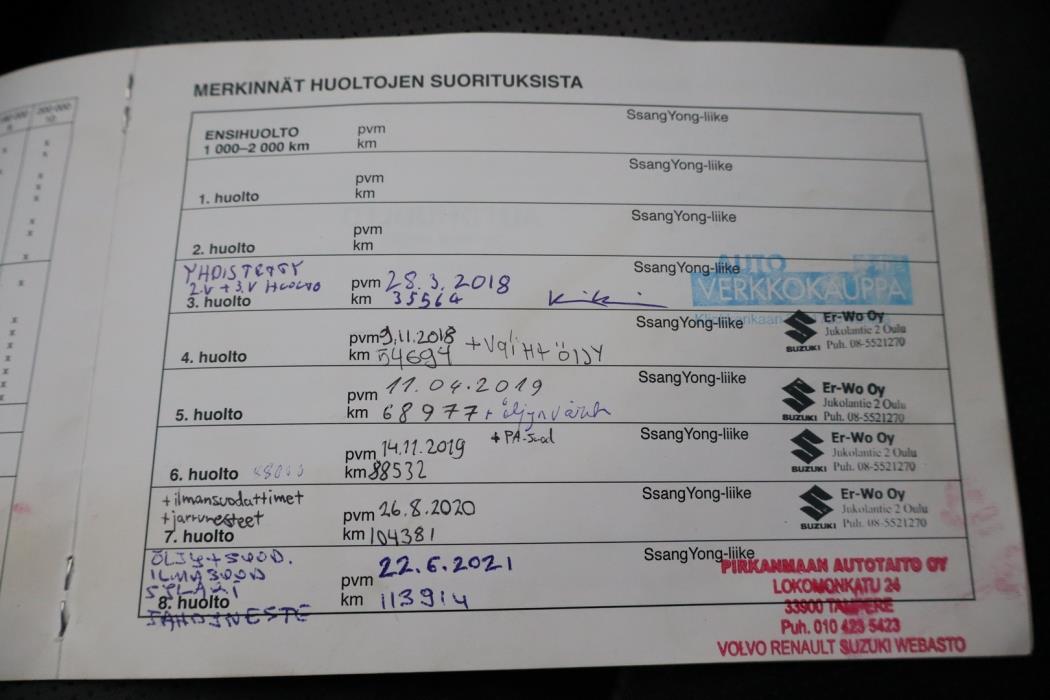 MERKINNÄT HUOLTOJEN SUORITUKSISTA
200 000
10
ENSIHUOLTO
1 000–2 000 km
pvm
km
SsangYong-liike
1. huolto
pvm
km
SsangYong-liike
2. huolto
pvm
km
SsangYong-liike
YHDISTETTY
2.V + 3.V HUOLTO
3. huolto
pvm 28.3.2018
km 35564
SsangYong-liike
AUTO
VERKKOKAUPPA
4. huolto
pvm 9.11.2018
km 54694 + väliHtöljy
SsangYong-liike
SUZUKI
Er-Wo Oy
Jukolantie 2 Oulu
Puh. 08-5521270
5. huolto
pvm 11.04.2019
km 68977
SsangYong-liike
SUZUKI
Er-Wo Oy
Jukolantie 2 Oulu
Puh. 08-5521270
6. huolto
pvm 14.11.2019 + PA-suod
km 88532
SsangYong-liike
SUZUKI
Er-Wo Oy
Jukolantie 2 Oulu
Puh. 08-5521270
+ilmansuodattimet
+jarrunesteet
7. huolto
pvm 26.8.2020
km 104381
SsangYong-liike
SUZUKI
Er-Wo Oy
Jukolantie 2 Oulu
Puh. 08-5521270
ÖLJY+SUOD.
ILMASUOD
8. huolto
pvm 22.6.2021
km 113914
SsangYong-liike
PIRKANMAAN AUTOTAITO OY
LOKOMONKATU 24
33900 TAMPERE
Puh. 010 423 5423
VOLVO RENAULT SUZUKI WEBASTO